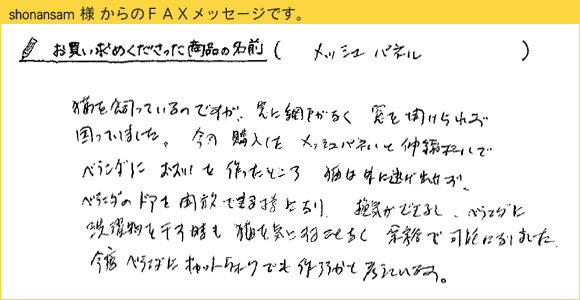 shonansam 様 からのＦＡＸメッセージです。
お買い求めくださった商品の名前 ( メッシュパネル )
猫を飼っているのですが、窓に網戸がなく 窓を開けられず
困っていました。今回購入した メッシュパネルと伸縮ポールで
ベランダに おおいを作ったところ 猫は外に逃げ出せず、
ベランダのドアを開放できる様になり、換気ができるし、ベランダに
洗濯物を干す時も 猫を気にすることもなく 余裕で可能になりました
今度 ベランダに キャットウォークでも作ろうかと考えています。